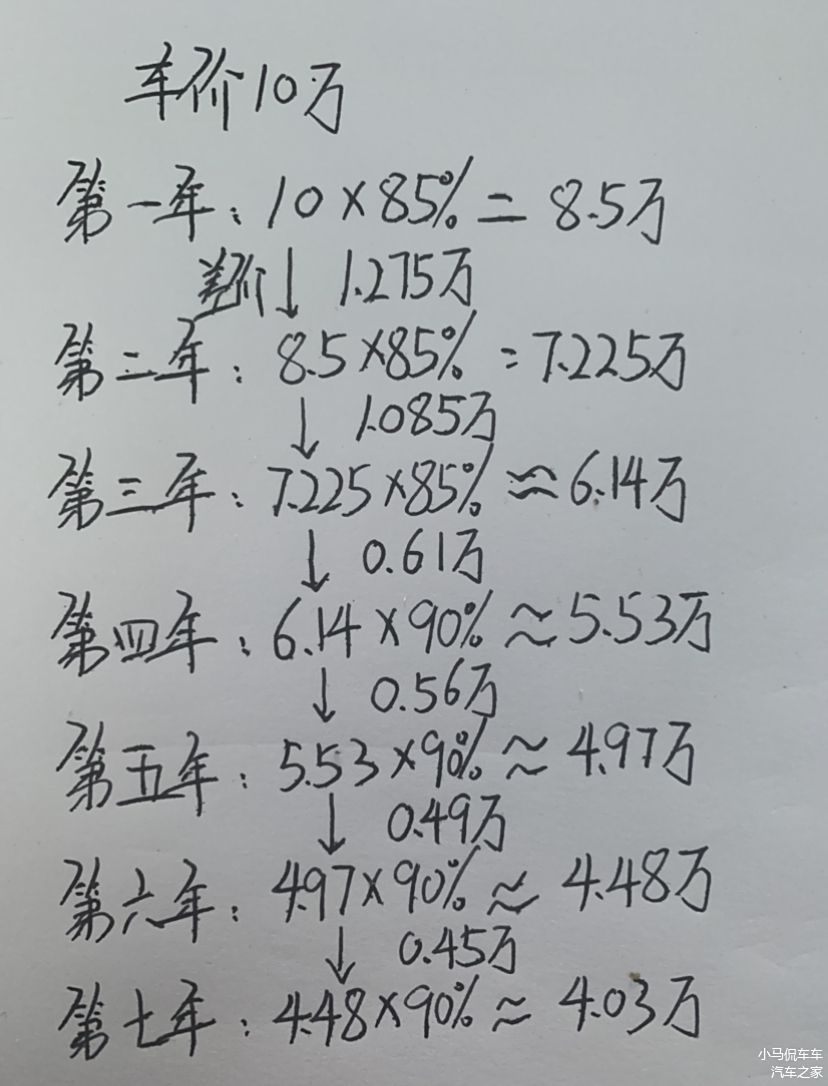 车价10万
第一年：10×85%=8.5万
差价↓1.275万
第二年：8.5×85%=7.225万
↓1.085万
第三年：7.225×85%≈6.14万
↓0.61万
第四年：6.14×90%≈5.53万
↓0.56万
第五年：5.53×90%≈4.97万
↓0.49万
第六年：4.97×90%≈4.48万
↓0.45万
第七年：4.48×90%≈4.03万
小马侃车车
汽车之家